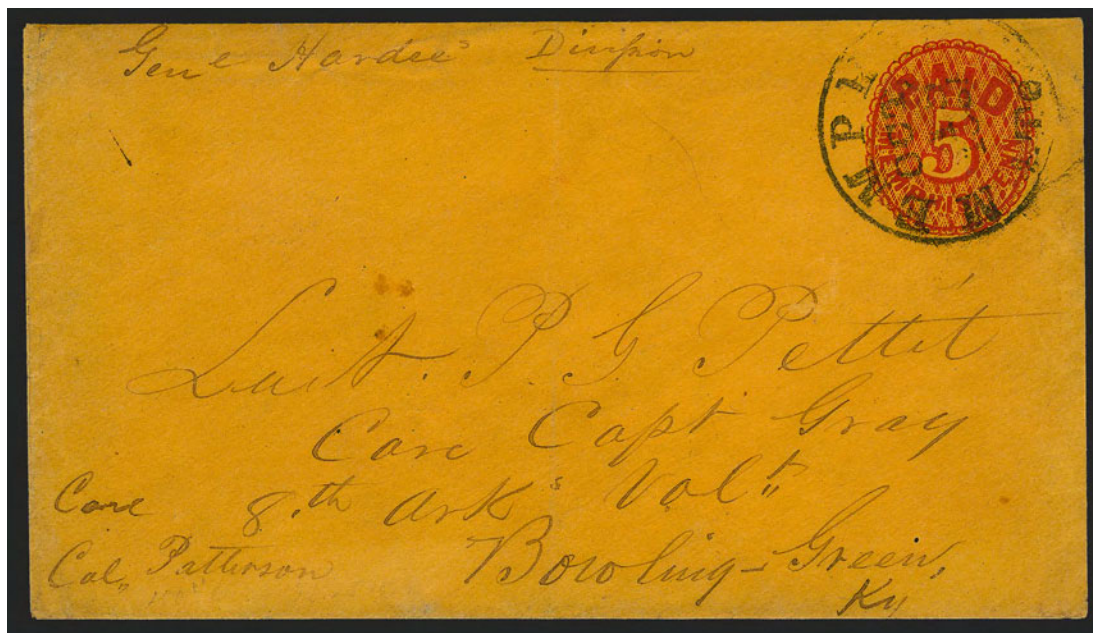 Genl Hardee's Division
PAID
5
MEMPHIS, TENN.
MEMPHIS
DEC
Luit. P. G Pettit
Care Capt Gray
Care 8.th Arks Volt"
Col, Patterson Bowling-Green,
Ky